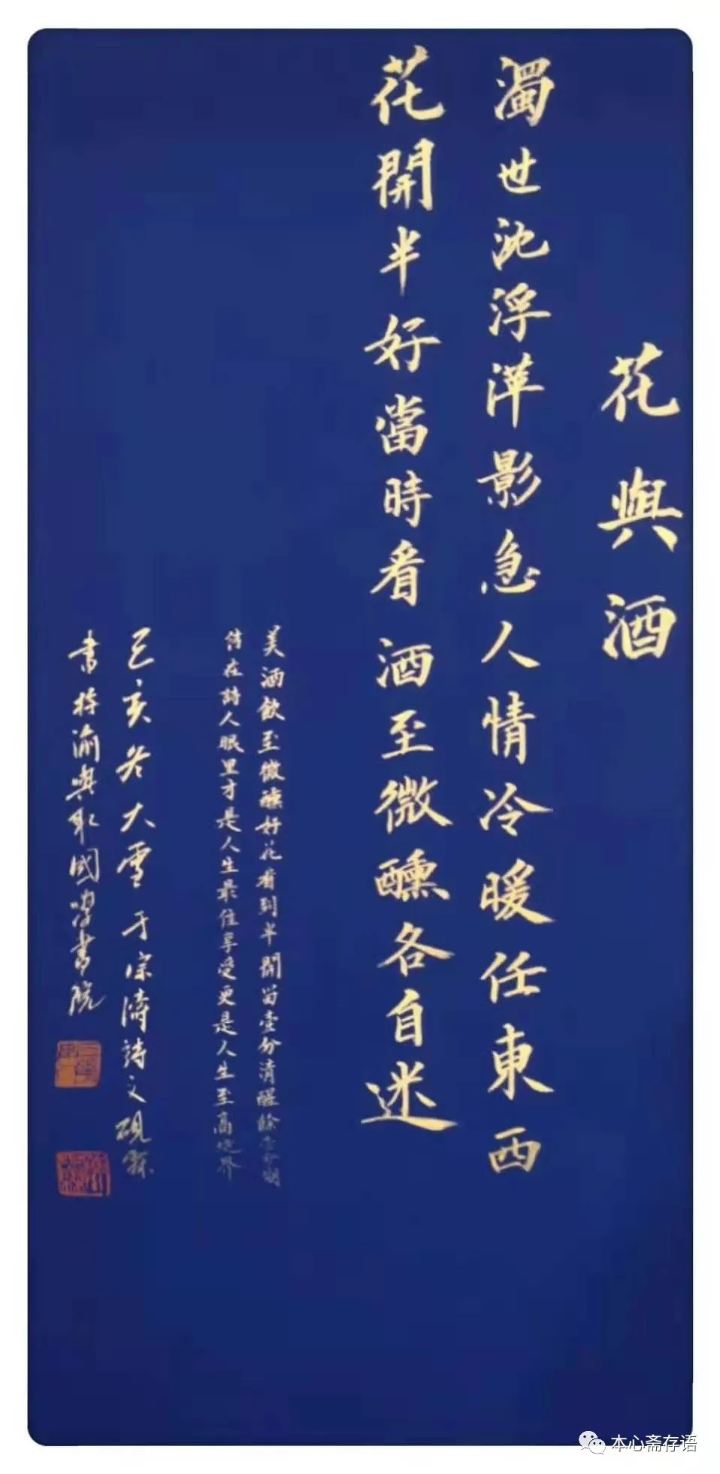 花與酒
濁世沈浮萍影急人情冷暖任東西
花開半好當時看酒至微醺各自迷
美酒飲至微醺好花看到半開留壹分清醒餘
在詩人眼里才是人生最佳享受更是人生至高境界
己亥冬大雪于宗濤詩文硯
書於渝與耶國學書院
本心斋存语